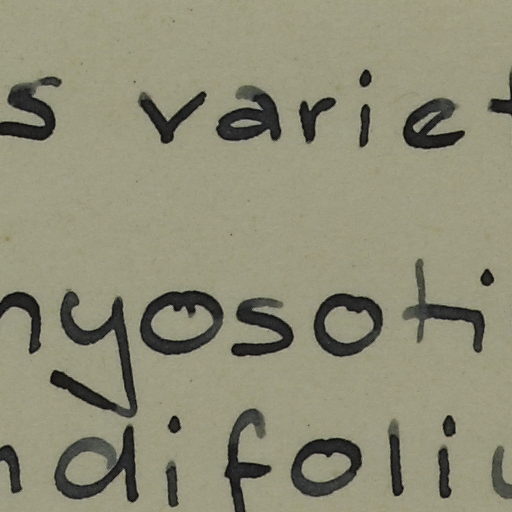 s variet
nyosoti
ndifoliu